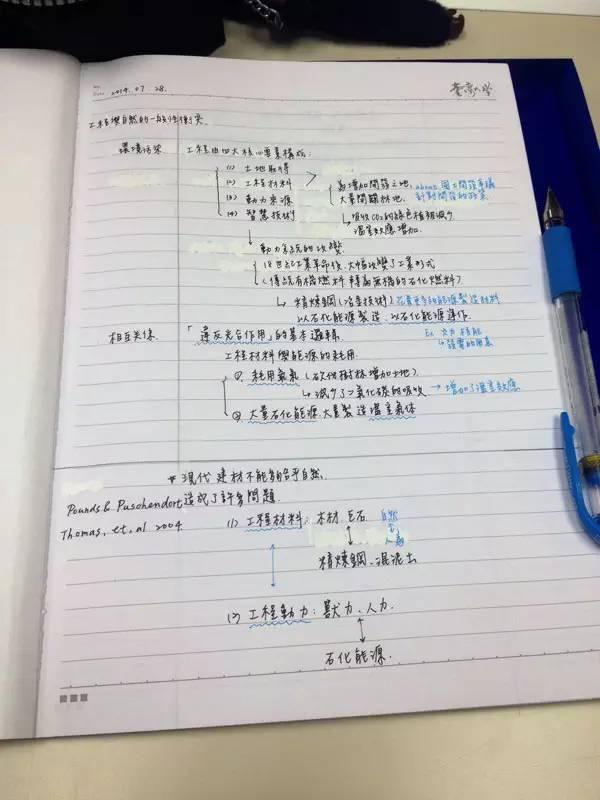 No.
Date 2014. 07. 28.
工程與自然的一般性衝突
環境污染
工程由四大核心要素構成:
(1) 土地取得
(2) 工程材料
(3) 動力來源
(4) 智慧技術
為增加開發之地,
大量開闢林地.
about 國土開發爭議
針對開發的政策
吸收CO2的綠色植物減少
溫室效應增加.
動力系統的改變
18世紀工業革命後, 大幅改變了工業形式
(傳統有機燃料轉為無機的石化燃料)
精煉鋼(冶金技術) 花費更多的能源製造材料
以石化能源製造、以石化能源運作.
相互关係
「違反光合作用」的基本邏輯.
Ex. 火力 核能
發電的用基
工程材料與能源的耗用
①. 耗用氧氣 (砍伐樹林增加土地)
減少了二氧化碳的吸收 → 增加了溫室效應
②. 大量石化能源, 大量製造溫室氣体
* 現代建材不能夠合乎自然,
Pounds & Puschendorf 造成了許多問題.
Thomas, et. al 2004
(1) 工程材料: 木材. 巨石 自然
人為
精煉鋼、混泥土
(2) 工程動力: 獸力、人力.
石化能源.